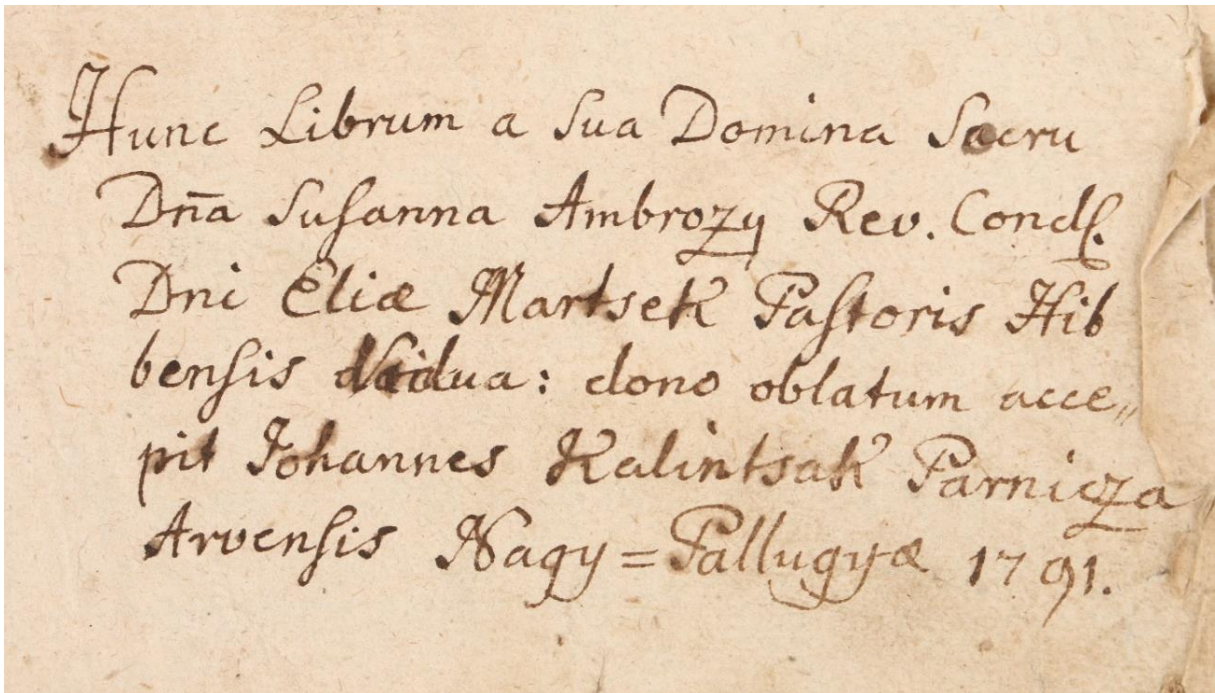 Hunc Librum a sua Domina Socru
Dn̄a Susanna Ambrozy Rev. Condſ.
Dni Eliæ Martsek Paſtoris Hib
benſis Vidua: dono oblatum acce„
pit Johannes Kalintsak Parnicza
Arvenſis Nagy=Pallugyæ 1791.